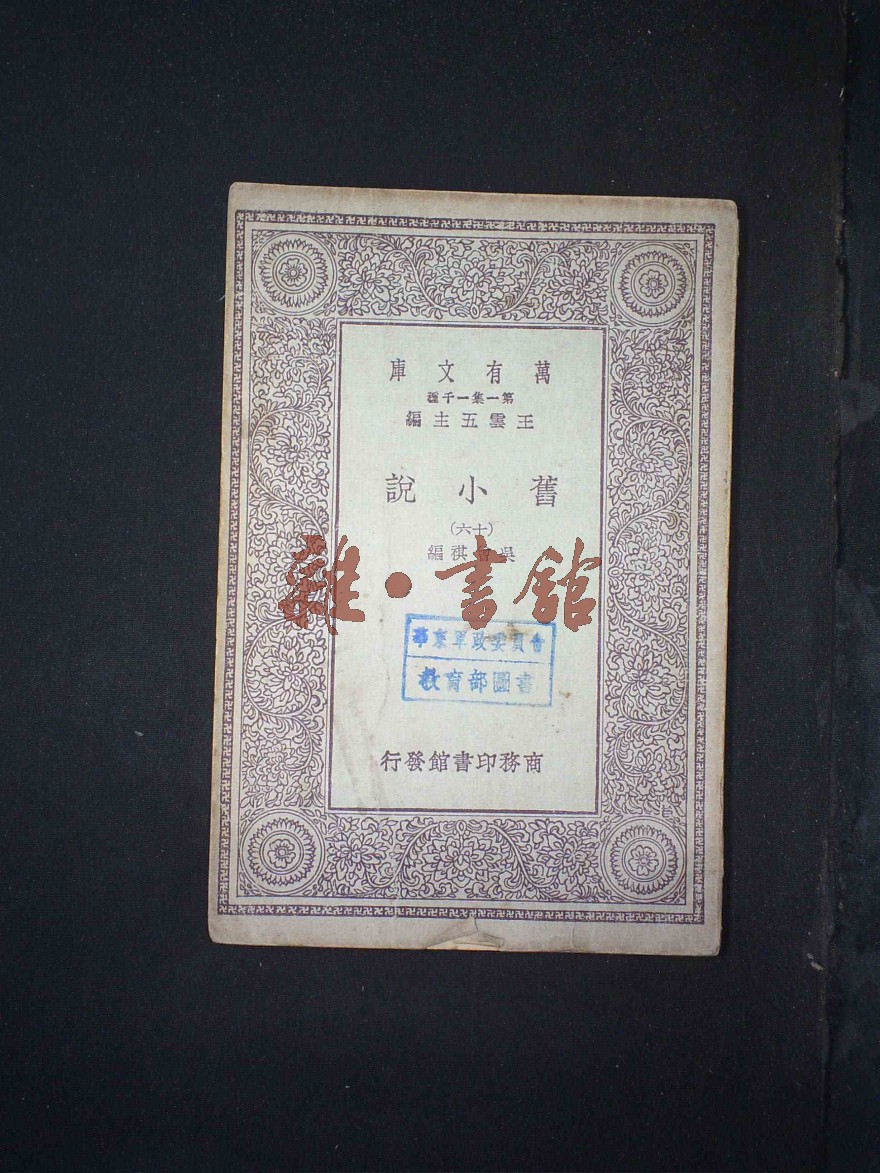 萬有文庫
第一集一千種
王雲五主編
舊小說
(十六)
吳曾祺編
雜·書館
華東軍政委員會
教育部圖書
商務印書館發行